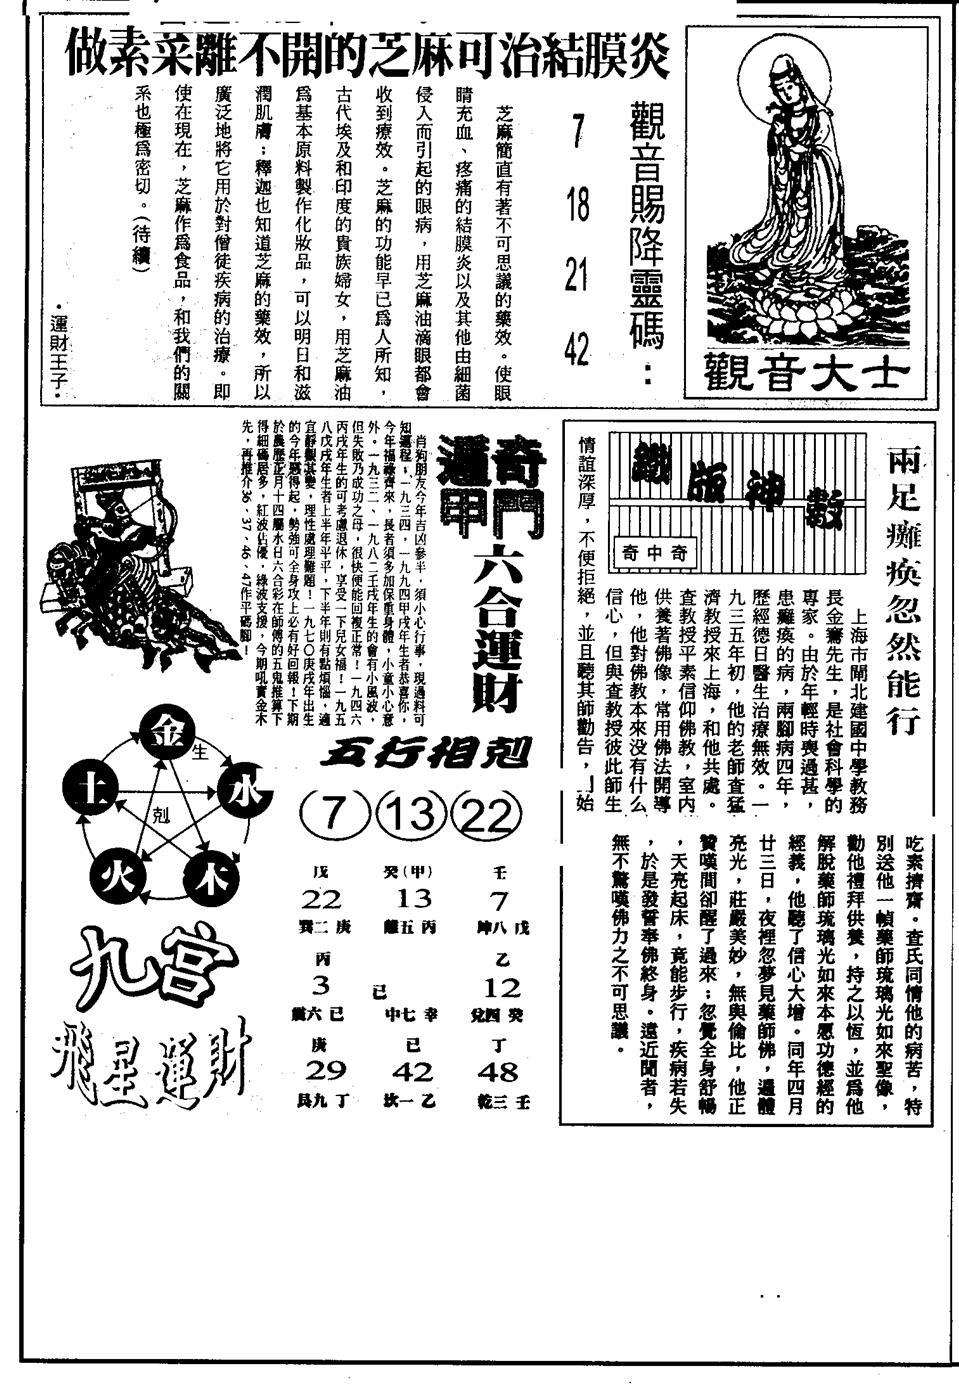 做素菜離不開的芝麻可治結膜炎
觀音賜降靈碼：
7
18
21
42
觀音大士
芝麻簡直有著不可思議的藥效。使眼
睛充血、疼痛的結膜炎以及其他由細菌
侵入而引起的眼病，用芝麻油滴眼都會
收到療效。芝麻的功能早已為人所知，
古代埃及和印度的貴族婦女，用芝麻油
為基本原料製作化妝品，可以明日和滋
潤肌膚；釋迦也知道芝麻的藥效，所以
廣泛地將它用於對僧徒疾病的治療。即
使在現在，芝麻作為食品，和我們的關
系也極為密切。（待續）
·運財王子·
奇門
遁甲
六合運財
肖狗朋友今年吉凶參半，須小心行事，現過料可
知運程；一九三四，一九九四甲戌年生者恭喜你，
今年福祿齊來，長者須多加保重身體，小童小心意
外。一九三二、一九八二壬戌年生的會有小風波，
但失敗乃成功之母，很快便能回複正常！一九四六
丙戌年生的可考慮退休，享受一下兒女福！一九五
八戊戌年生者上半年平平，下半年則有點煩惱，適
宜靜觀其變，理性處理難題！一九七〇庚戌年出生
的今年惡得起，勢強可全身攻上必有好回報！下期
於農歷正月十四屬水日六合彩在師傅的五鬼推算下
得細碼居多，紅波佔優，綠波支援，今期吼實金木
先，再推介36、37、46、47作平碼腳！
兩足癱瘓忽然能行
鐵版神數
奇中奇
上海市閘北建國中學教務
長金騫先生，是社會科學的
專家。由於年輕時喪過甚，
患癱瘓的病，兩腳病四年，
歷經德日醫生治療無效。一
九三五年初，他的老師查猛
濟教授來上海，和他共處。
查教授平素信仰佛教，室內
供養著佛像，常用佛法開導
他，他對佛教本來沒有什么
信心，但與查教授彼此師生
情誼深厚，不便拒絕，並且聽其師勸告，開始
吃素擠齋。查氏同情他的病苦，特
別送他一幀藥師琉璃光如來聖像，
勸他禮拜供養，持之以恆，並為他
解脫藥師琉璃光如來本愿功德經的
經義，他聽了信心大增。同年四月
廿三日，夜裡忽夢見藥師佛，遍體
亮光，莊嚴美妙，無與倫比，他正
贊嘆間卻醒了過來；忽覺全身舒暢
，天亮起床，竟能步行，疾病若失
，於是發誓奉佛終身。遠近聞者，
無不驚嘆佛力之不可思議。
五行相剋
金
生
土
水
剋
火
木
7 13 22
戊 癸（甲） 壬
22 13 7
巽二庚 離五丙 坤八戊
丙 乙
3 己 12
震六己 中七辛 兌四癸
庚 己 丁
29 42 48
艮九丁 坎一乙 乾三壬
九宮
飛星運財